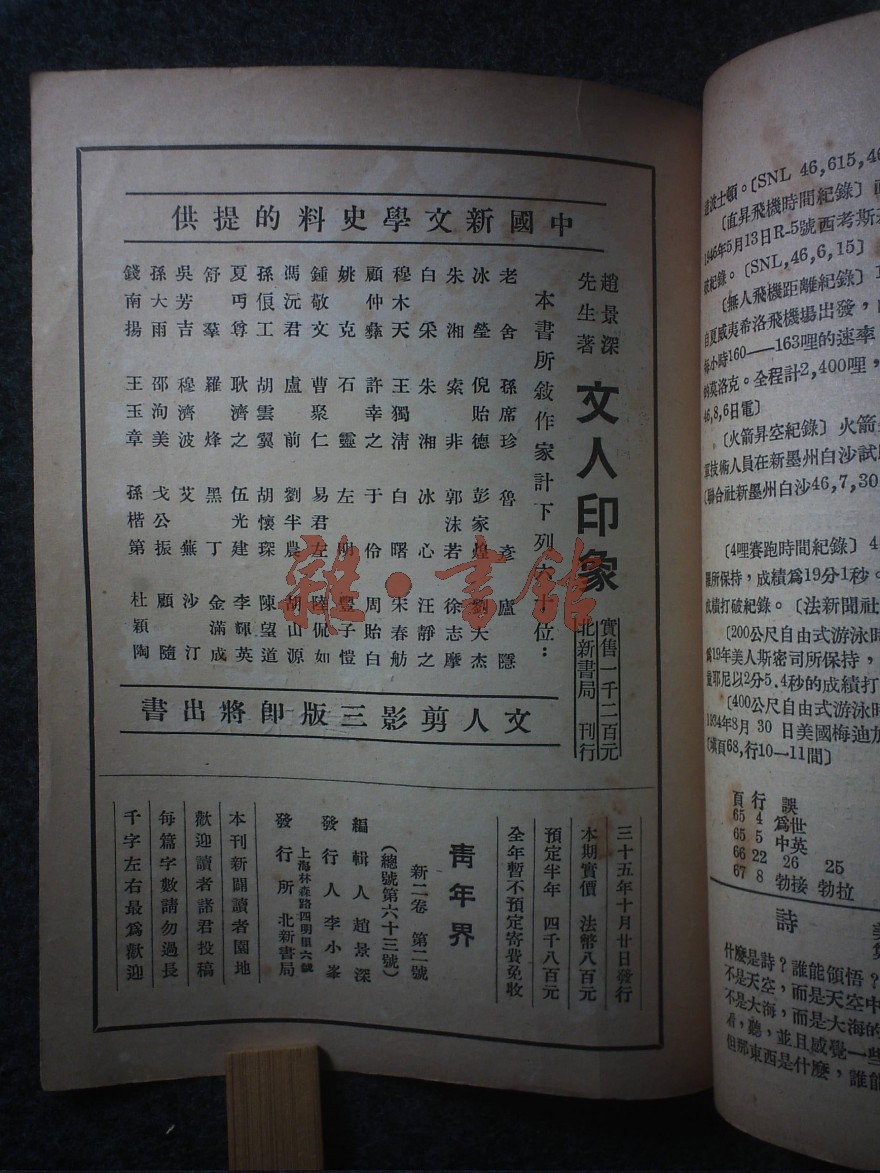 中國新文學史料的提供
趙景深
先生著
文人印象
實售一千二百元
北新書局 刊行
本書所敍作家計下列六十位：
老舍 孫席珍 魯彥 盧隱
冰瑩 倪貽德 彭家煌 劉大杰
朱湘 索非 郭沫若 徐志摩
白采 朱湘 冰心 汪靜之
穆木天 王獨清 白曙 宋春舫
顧仲彝 許幸之 于伶 周貽白
姚克 石靈 左明 豐子愷
鍾敬文 曹聚仁 易君左 陸侃如
馮沅君 盧前 劉半農 胡山源
孫俍工 胡雲翼 胡懷琛 陳望道
夏丏尊 耿濟之 伍光建 李輝英
舒羣 羅烽 黑丁 金滿成
吳芳吉 穆濟波 艾蕪 沙汀
孫大雨 邵洵美 戈公振 顧隨
錢南揚 王玉章 孫楷第 杜穎陶
文人剪影三版卽將出書
三十五年十月廿日發行
本期實價 法幣八百元
預定半年 四千八百元
全年暫不預定寄費免收
青年界
新二卷 第二號
（總號第六十三號）
編輯人趙景深
發行人李小峯
上海林森路四明里六號
發行所 北新書局
本刊新闢讀者園地
歡迎讀者諸君投稿
每篇字數請勿過長
千字左右最爲歡迎
雜·書館
達波士頓。〔SNL 46,615,46
〔直昇飛機時間紀錄〕
1946年5月13日R-5號西考斯
破紀錄。〔SNL,46,6,15〕
〔無人飛機距離紀錄〕
自夏威夷希洛飛機場出發，
每小時160——163哩的速率
的莫洛克。全程計2,400哩，
46,8,6日電〕
〔火箭昇空紀錄〕火箭
軍技術人員在新墨州白沙試
〔聯合社新墨州白沙46,7,30
〔4哩賽跑時間紀錄〕4
所保持，成績爲19分1秒。
成績打破紀錄。〔法新聞社
〔200公尺自由式游泳時
爲19年美人斯密司所保持，
耶尼以2分5.4秒的成績打
〔400公尺自由式游泳時
1934年8月 30 日美國梅迪加
〔積頁68,行10—11間〕
頁 行 誤
65 4 爲世
65 5 中英
66 22 26 25
67 8 勃接 勃拉
詩
什麽是詩？誰能領悟？
不是天空，而是天空中
不是大海，而是大海的
看，聽，並且感覺一些
但那東西是什麽，誰能